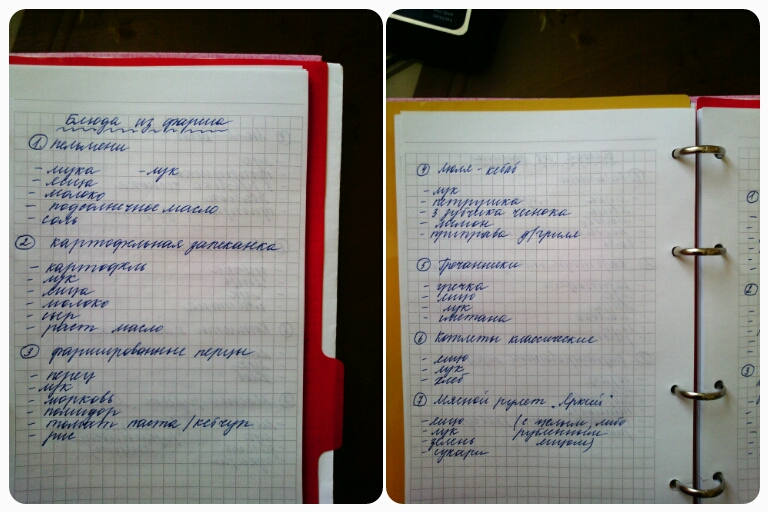 Блюда из фарша
① пельмени
- мука - лук
- яица
- молоко
- подсолнечное масло
- соль
② картофельная запеканка
- картофель
- лук
- яица
- молоко
- сыр
- раст масло
③ фаршированные перцы
- перец
- лук
- морковь
- помидор
- томат паста/кетчуп
- рис
④ Люля-кебаб
- лук
- петрушка
- 3 зубчика чеснока
- лимон
- приправа д/гриля
⑤ Гречанники
- гречка
- яицо
- лук
- сметана
⑥ Котлеты классические
- яицо
- лук
- хлеб
⑦ Мясной рулет "Яркий"
- яицо (с целым, либо
- лук рубленным
- зелень яицом)
- сухари